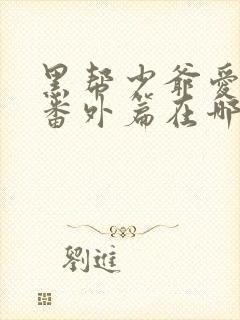 黑帮少爷爱
番外篇在哪
劉進